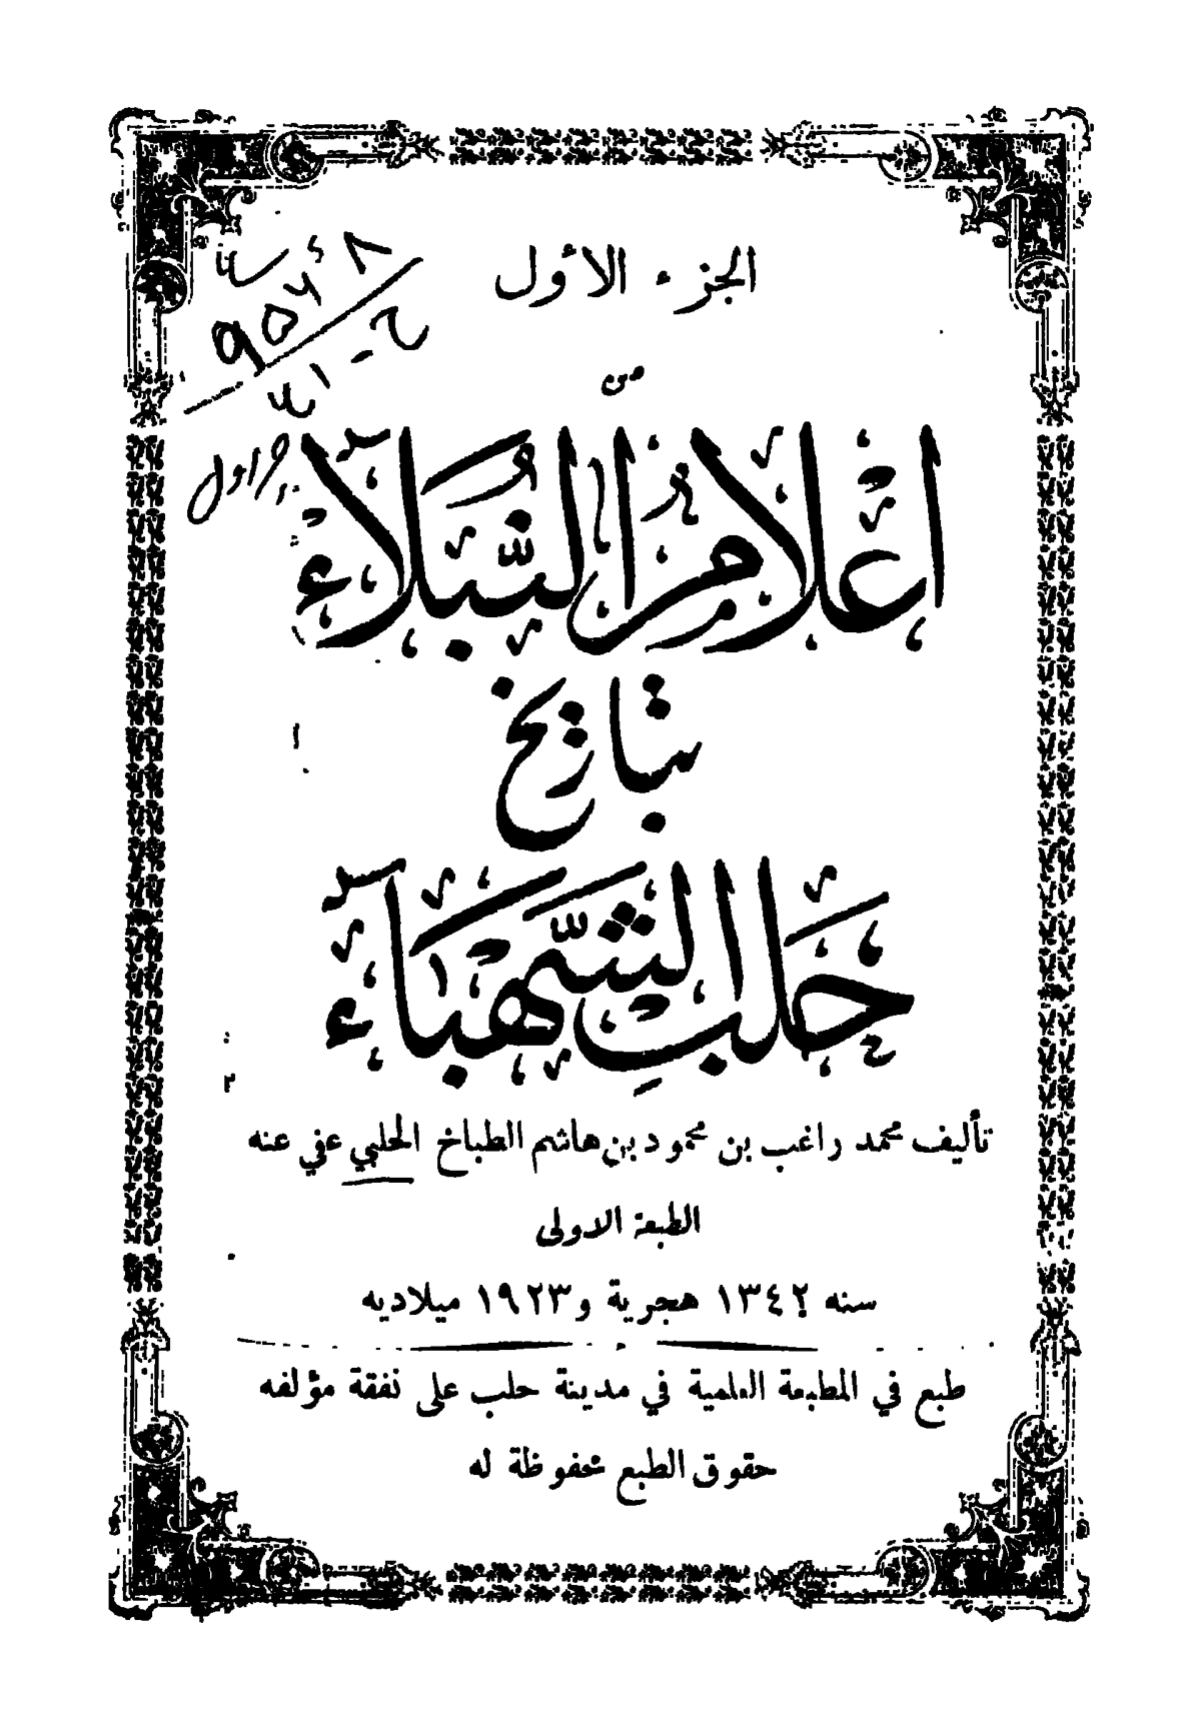 الجزء الأول
من
اعلام النبلاء
بتاريخ
حلب الشهباء
تأليف محمد راغب بن محمود بن هاشم الطباخ الحلبي عفي عنه
الطبعة الاولى
سنه ١٣٤٢ هجرية و١٩٢٣ ميلاديه
طبع في المطبعة العلمية في مدينة حلب على نفقة مؤلفه
حقوق الطبع محفوظة له